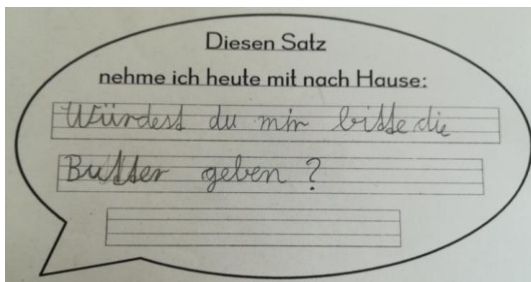 Diesen Satz
nehme ich heute mit nach Hause:
Würdest du mir bitte die
Butter geben?